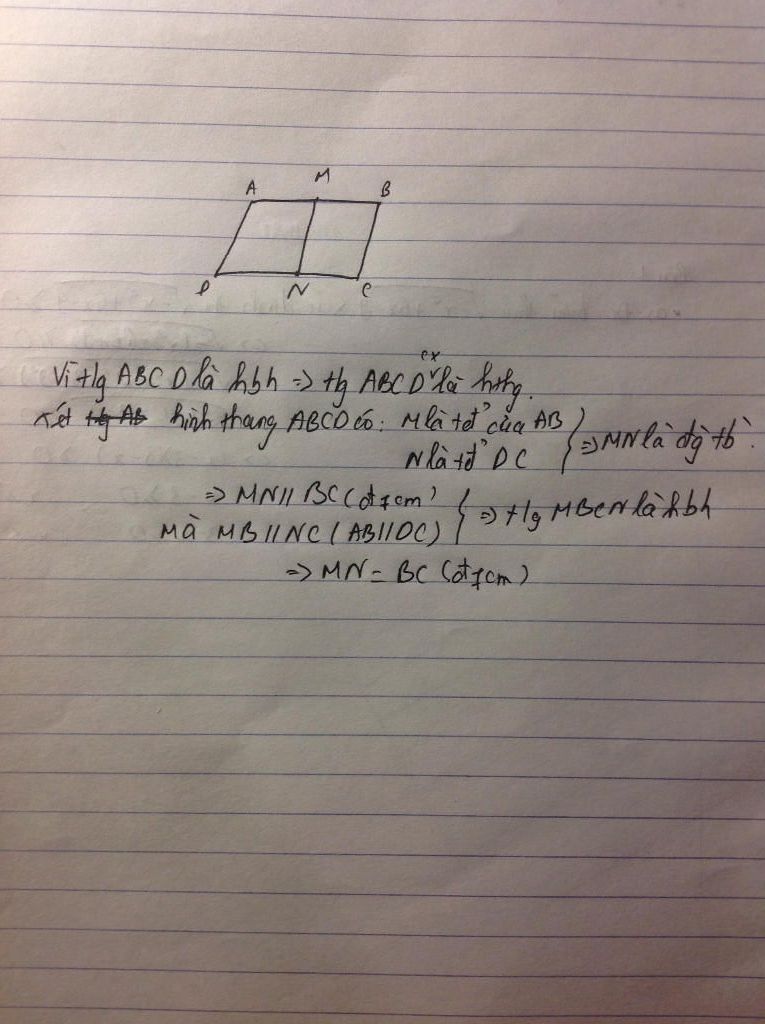 A M B
D N C
Vì t/g ABCD là hbh => t/g ABCD cx là hthg.
Xét hình thang ABCD có: M là tđ' của AB
N là tđ' DC
} => MN là đg tb.
=> MN // BC (đ/cm)
Mà MB // NC (AB // DC)
} => t/g MBCN là hbh
=> MN = BC (đ/cm)